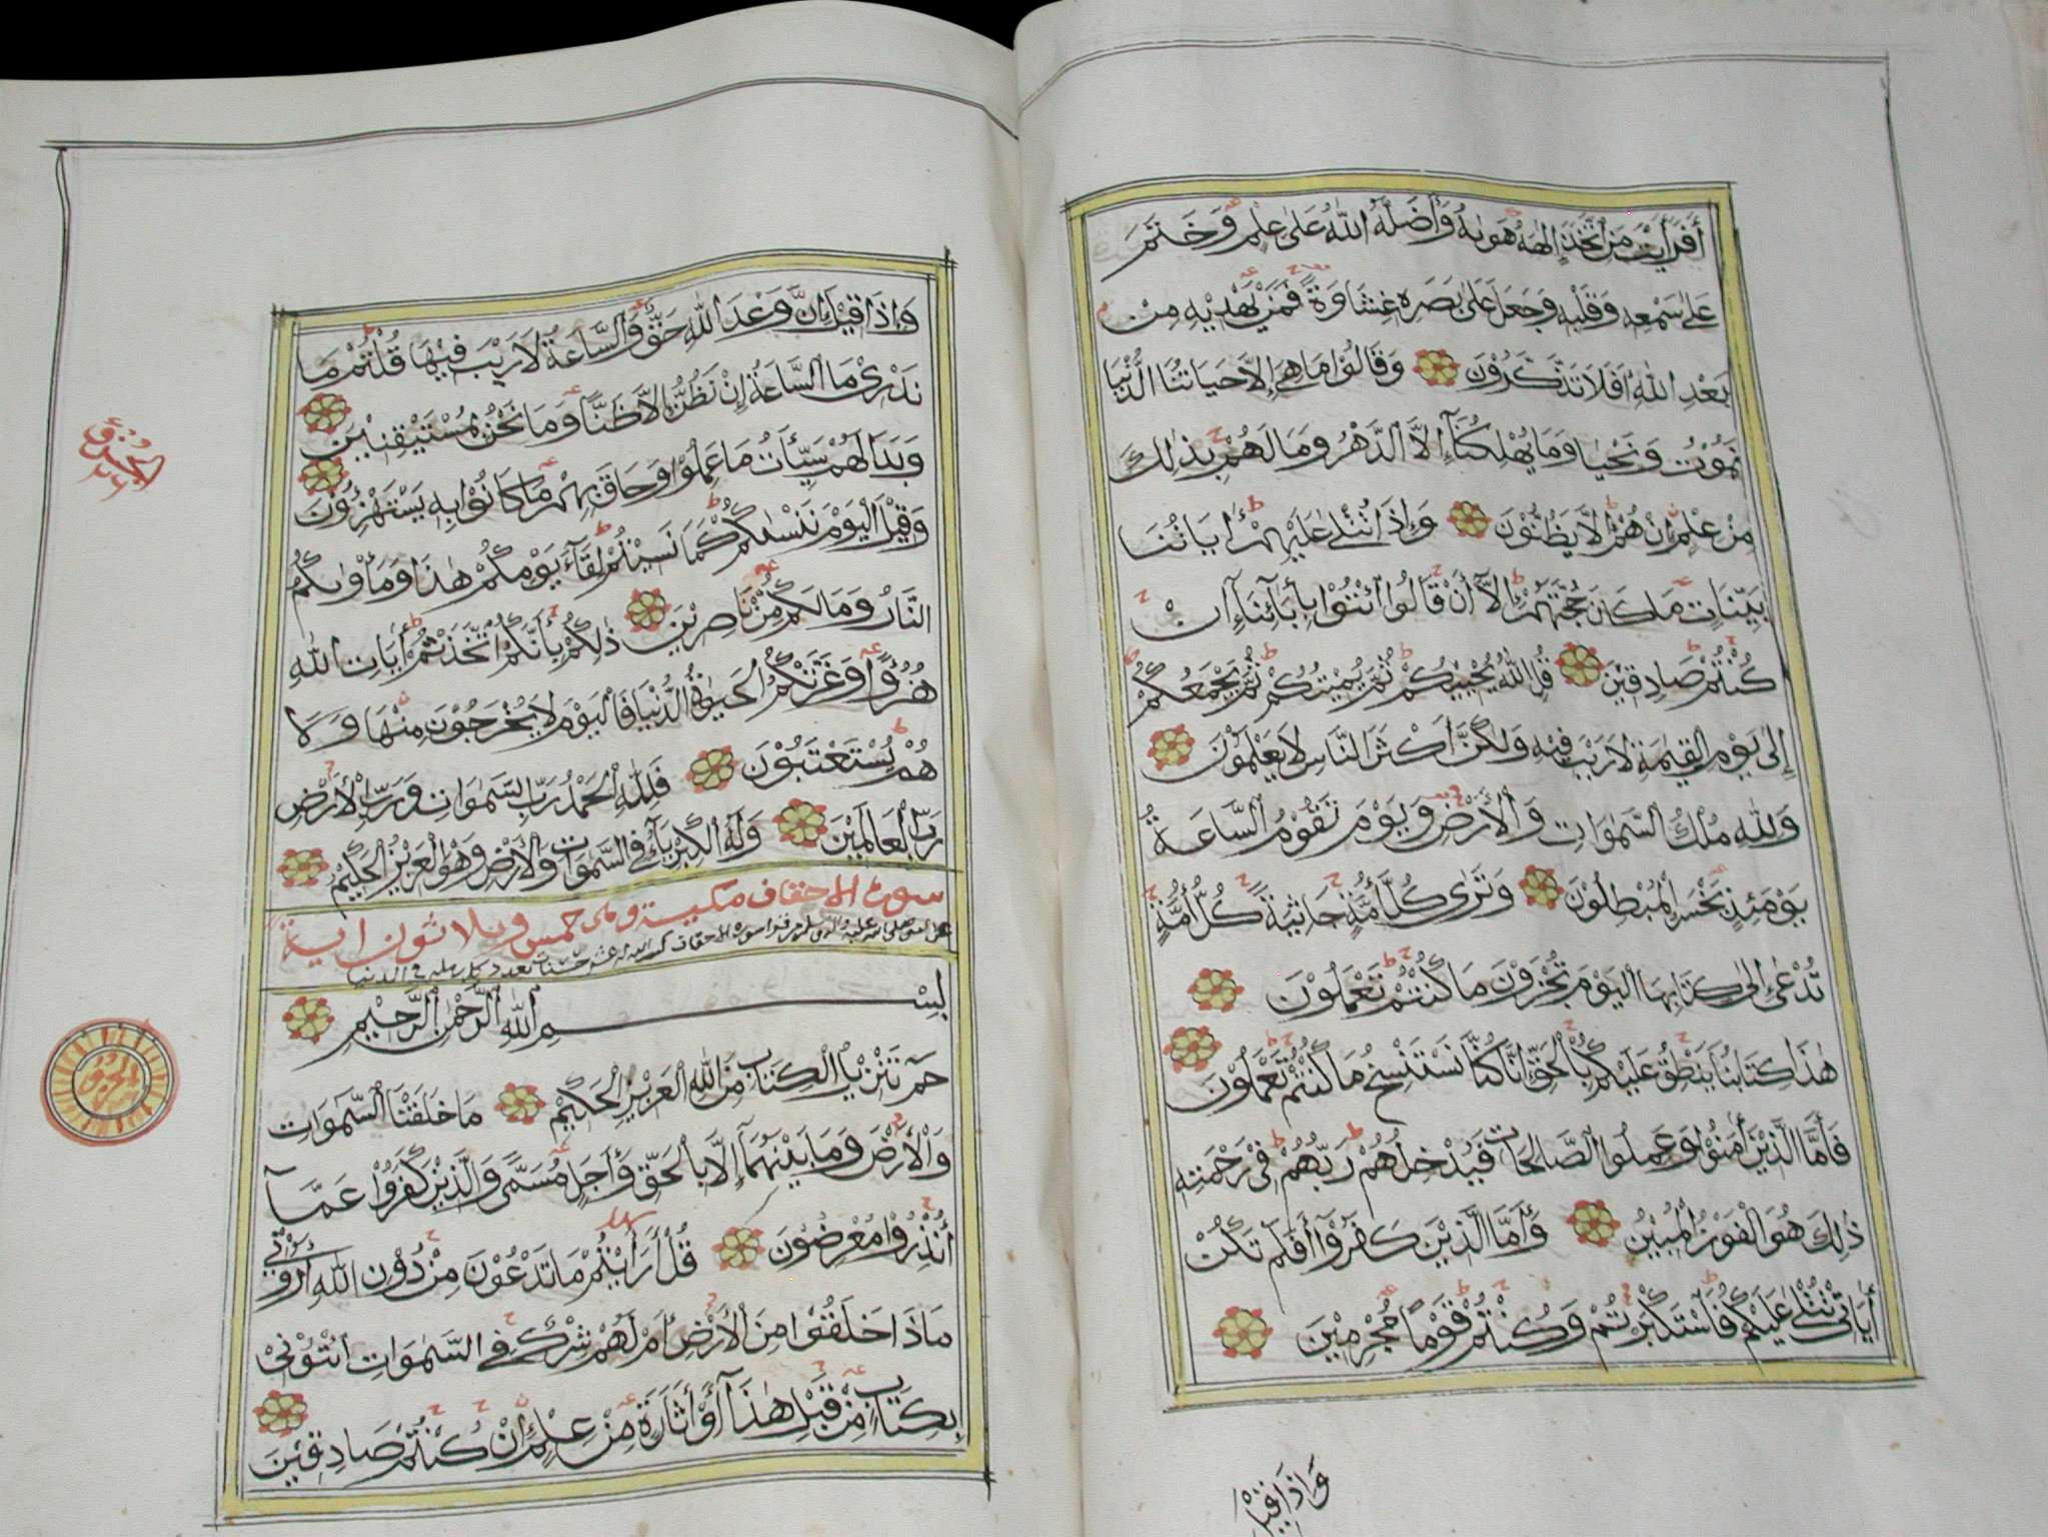 أَفَرَأَيْتَ مَنِ ٱتَّخَذَ إِلٰهَهُ هَوٰىهُ وَأَضَلَّهُ ٱللّٰهُ عَلٰى عِلْمٍ وَخَتَمَ
عَلٰى سَمْعِهِ وَقَلْبِهِ وَجَعَلَ عَلٰى بَصَرِهِ غِشَاوَةً فَمَنْ يَهْدِيْهِ مِنْ
بَعْدِ اللّٰهِ اَفَلَا تَذَكَّرُوْنَ وَقَالُوْا مَا هِيَ إِلَّا حَيَاتُنَا الدُّنْيَا
نَمُوْتُ وَنَحْيَا وَمَا يُهْلِكُنَآ إِلَّا الدَّهْرُ وَمَا لَهُمْ بِذٰلِكَ
مِنْ عِلْمٍ إِنْ هُمْ إِلَّا يَظُنُّوْنَ وَإِذَا تُتْلٰى عَلَيْهِمْ أٰيَاتُنَا
بَيِّنَاتٍ مَا كَانَ حُجَّتَهُمْ إِلَّآ أَنْ قَالُوا ٱئْتُوْا بِأٰبَآئِنَآ إِنْ
كُنْتُمْ صَادِقِيْنَ قُلِ اللّٰهُ يُحْيِيْكُمْ ثُمَّ يُمِيْتُكُمْ ثُمَّ يَجْمَعُكُمْ
إِلٰى يَوْمِ الْقِيٰمَةِ لَا رَيْبَ فِيْهِ وَلٰكِنَّ أَكْثَرَ النَّاسِ لَا يَعْلَمُوْنَ
وَلِلّٰهِ مُلْكُ السَّمٰوَاتِ وَٱلْأَرْضِ وَيَوْمَ تَقُوْمُ ٱلسَّاعَةُ
يَوْمَئِذٍ يَخْسَرُ الْمُبْطِلُوْنَ وَتَرٰى كُلَّ أُمَّةٍ جَاثِيَةً كُلُّ أُمَّةٍ
تُدْعٰى إِلٰى كِتَابِهَا الْيَوْمَ تُجْزَوْنَ مَا كُنْتُمْ تَعْمَلُوْنَ
هٰذَا كِتَابُنَا يَنْطِقُ عَلَيْكُمْ بِالْحَقِّ إِنَّا كُنَّا نَسْتَنْسِخُ مَا كُنْتُمْ تَعْمَلُوْنَ
فَأَمَّا الَّذِيْنَ أٰمَنُوْا وَعَمِلُوا الصَّالِحَاتِ فَيُدْخِلُهُمْ رَبُّهُمْ فِيْ رَحْمَتِهِ
ذٰلِكَ هُوَ الْفَوْزُ الْمُبِيْنُ وَأَمَّا الَّذِيْنَ كَفَرُوْآ أَفَلَمْ تَكُنْ
أٰيَاتِيْ تُتْلٰى عَلَيْكُمْ فَاسْتَكْبَرْتُمْ وَكُنْتُمْ قَوْمًا مُجْرِمِيْنَ
وَإِذَا قِيْلَ
وَإِذَا قِيْلَ إِنَّ وَعْدَ اللّٰهِ حَقٌّ وَّالسَّاعَةُ لَا رَيْبَ فِيْهَا قُلْتُمْ مَا
نَدْرِيْ مَا السَّاعَةُ إِنْ نَظُنُّ إِلَّا ظَنًّا وَمَا نَحْنُ بِمُسْتَيْقِنِيْنَ
وَبَدَا لَهُمْ سَيِّئَاتُ مَا عَمِلُوْا وَحَاقَ بِهِمْ مَا كَانُوْا بِهِ يَسْتَهْزِءُوْنَ
وَقِيْلَ الْيَوْمَ نَنْسٰىكُمْ كَمَا نَسِيْتُمْ لِقَآءَ يَوْمِكُمْ هٰذَا وَمَأْوٰىكُمُ
النَّارُ وَمَا لَكُمْ مِنْ نَّاصِرِيْنَ ذٰلِكُمْ بِأَنَّكُمُ اتَّخَذْتُمْ أٰيَاتِ اللّٰهِ
هُزُوًا وَّغَرَّتْكُمُ الْحَيٰوةُ الدُّنْيَا فَالْيَوْمَ لَا يُخْرَجُوْنَ مِنْهَا وَلَا
هُمْ يُسْتَعْتَبُوْنَ فَلِلّٰهِ الْحَمْدُ رَبِّ السَّمٰوَاتِ وَرَبِّ الْأَرْضِ
رَبِّ الْعَالَمِيْنَ وَلَهُ الْكِبْرِيَآءُ فِي السَّمٰوَاتِ وَالْأَرْضِ وَهُوَ الْعَزِيْزُ الْحَكِيْمُ
سورة الاحقاف مكية وهى خمس وثلاثون اية
بِسْمِ اللّٰهِ الرَّحْمٰنِ الرَّحِيْمِ
حٰمٓ تَنْزِيْلُ الْكِتَابِ مِنَ اللّٰهِ الْعَزِيْزِ الْحَكِيْمِ مَا خَلَقْنَا السَّمٰوَاتِ
وَالْأَرْضَ وَمَا بَيْنَهُمَآ إِلَّا بِالْحَقِّ وَأَجَلٍ مُسَمًّى وَالَّذِيْنَ كَفَرُوْا عَمَّآ
أُنْذِرُوْا مُعْرِضُوْنَ قُلْ أَرَأَيْتُمْ مَا تَدْعُوْنَ مِنْ دُوْنِ اللّٰهِ أَرُوْنِيْ
مَاذَا خَلَقُوْا مِنَ الْأَرْضِ أَمْ لَهُمْ شِرْكٌ فِي السَّمٰوَاتِ ائْتُوْنِيْ
بِكِتَابٍ مِنْ قَبْلِ هٰذَآ أَوْ أَثَارَةٍ مِنْ عِلْمٍ إِنْ كُنْتُمْ صَادِقِيْنَ
الجزؤ
٢٦
الجزؤ